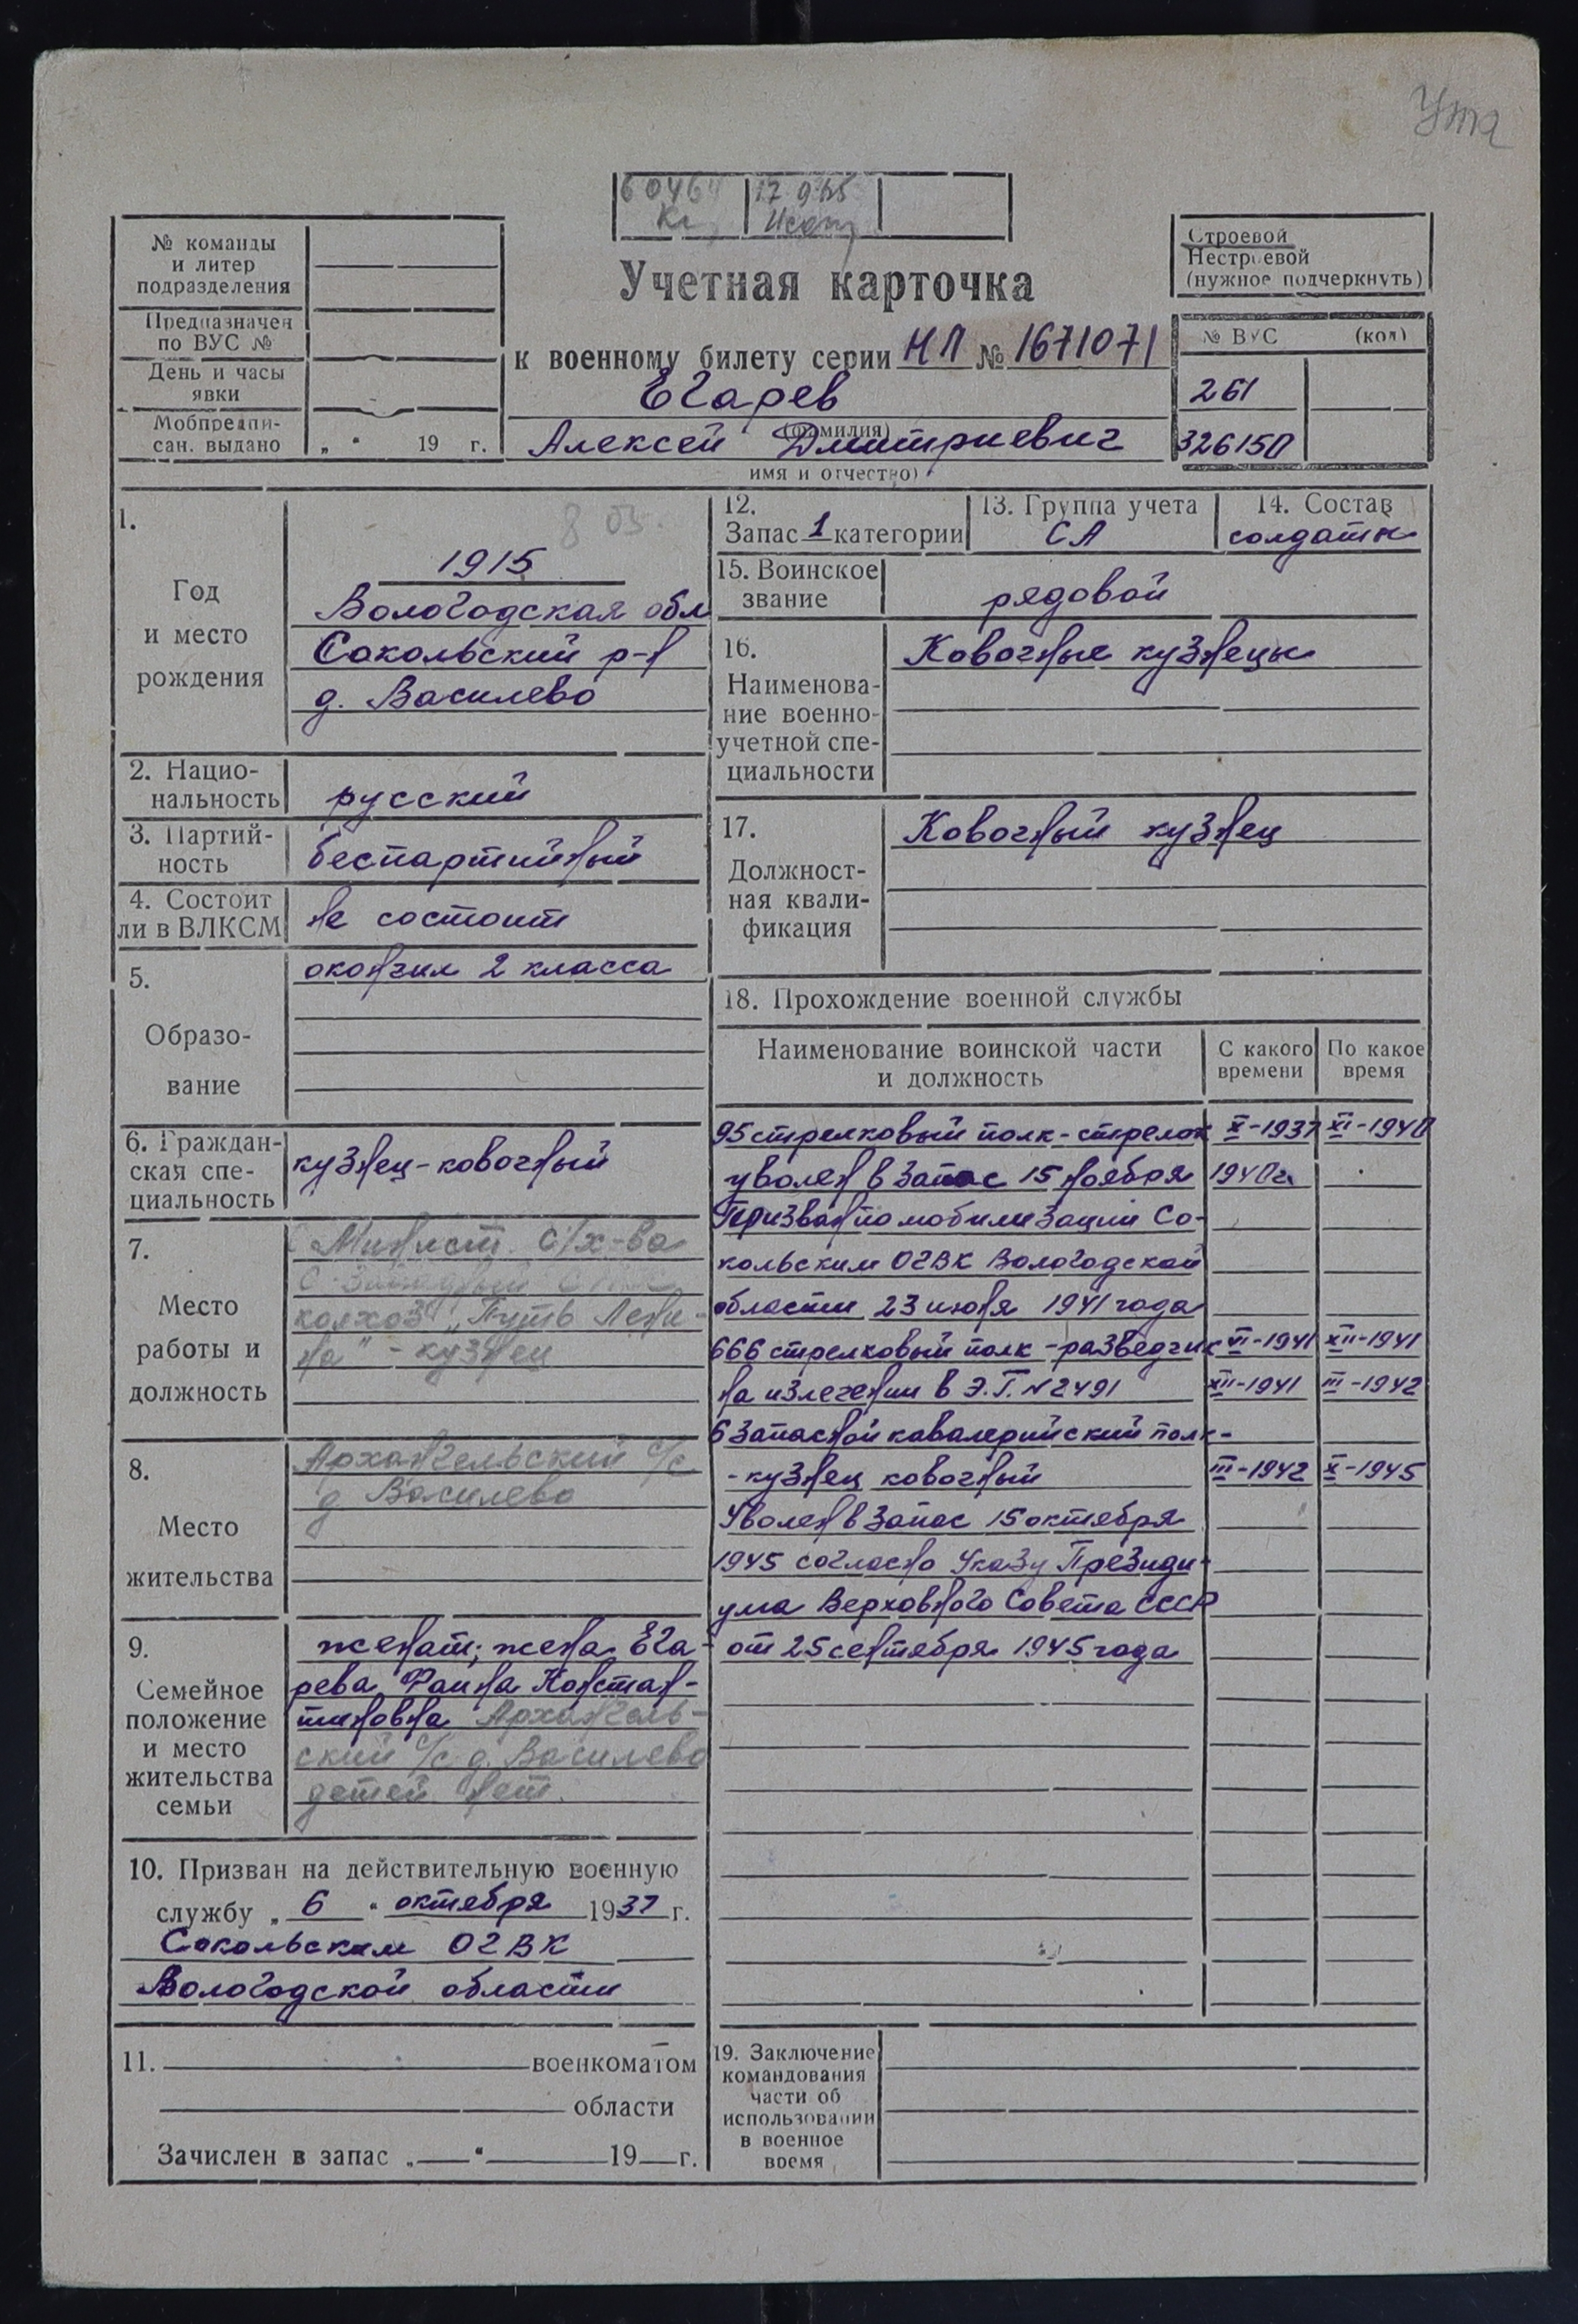 Ута
60464 17 965
№ команды
и литер
подразделения
Предназначен
по ВУС №
День и часы
явки
Мобпредпи-
сан. выдано „ “ 19 г.
Учетная карточка
к военному билету серии НП № 1671071
Егарев
(фамилия)
Алексей Дмитриевич
имя и отчество)
Строевой
Нестроевой
(нужное подчеркнуть)
№ ВУС (код)
261
326150
1.
Год
и место
рождения
1915
Вологодская обл
Сокольский р-н
д. Василево
2. Нацио-
нальность
русский
3. Партий-
ность
беспартийный
4. Состоит
ли в ВЛКСМ
не состоит
5.
Образо-
вание
окончил 2 класса
6. Граждан-
ская спе-
циальность
кузнец-ковочный
7.
Место
работы и
должность
Минист. с/х-ва
колхоз „Путь Лени-
на" - кузнец
8.
Место
жительства
Архангельский с/с
д Василево
9.
Семейное
положение
и место
жительства
семьи
женат; жена Ега-
рева Фаина Констан-
тиновна Архангель-
ский с/с д. Василево
детей нет.
10. Призван на действительную военную
службу „ 6 “ октября 1937 г.
Сокольским ОГВК
Вологодской области
11. военкоматом
области
Зачислен в запас „ “ 19 г.
12.
Запас 1 категории
13. Группа учета
СА
14. Состав
солдаты
15. Воинское
звание
рядовой
16.
Наименова-
ние военно-
учетной спе-
циальности
Ковочные кузнецы
17.
Должност-
ная квали-
фикация
Ковочный кузнец
18. Прохождение военной службы
Наименование воинской части
и должность
С какого
времени
По какое
время
95 стрелковый полк - стрелок X-1937 XI-1940
уволен в запас 15 ноября 1940 г.
Призван по мобилизации Со-
кольским ОГВК Вологодской
области 23 июня 1941 года
666 стрелковый полк - разведчик VI-1941 XII-1941
на излечении в Э.Г. N 2491 XII-1941 III-1942
6 запасной кавалерийский полк-
- кузнец ковочный III-1942 X-1945
Уволен в запас 15 октября
1945 согласно Указу Президи-
ума Верховного Совета СССР
от 25 сентября 1945 года
19. Заключение
командования
части об
использовании
в военное
время